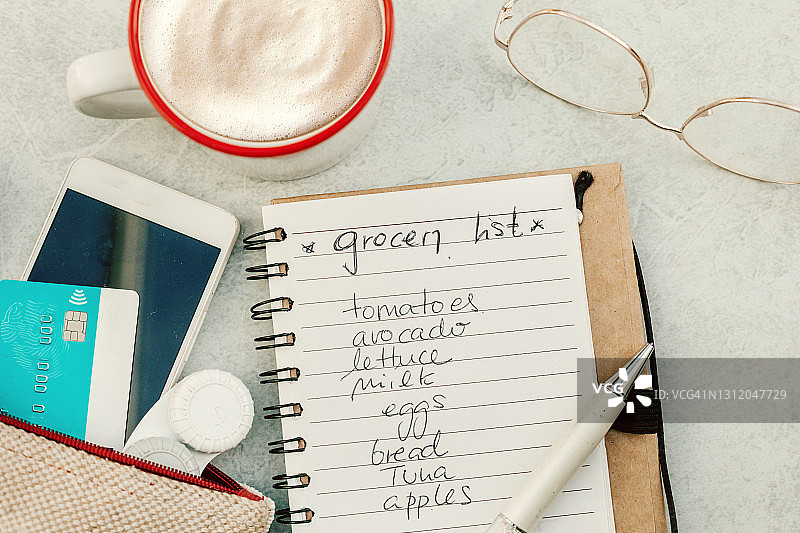 * grocery list *
tomatoes
avocado
lettuce
milk
eggs
bread
Tuna
apples
VCG
VCG41N1312047729